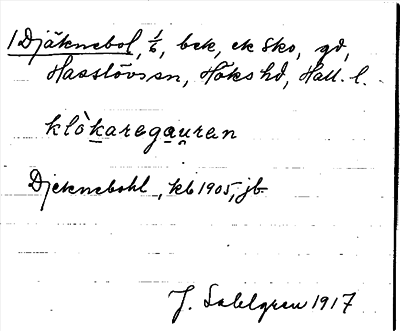 1 Djäknebol, 1/6, bek, ek Sko, gd,
Hasslövs sn, Höks hd, Hall. l.
klòkaregau̯ren
Djeknebohl, kb 1905, jb
J. Sahlgren 1917